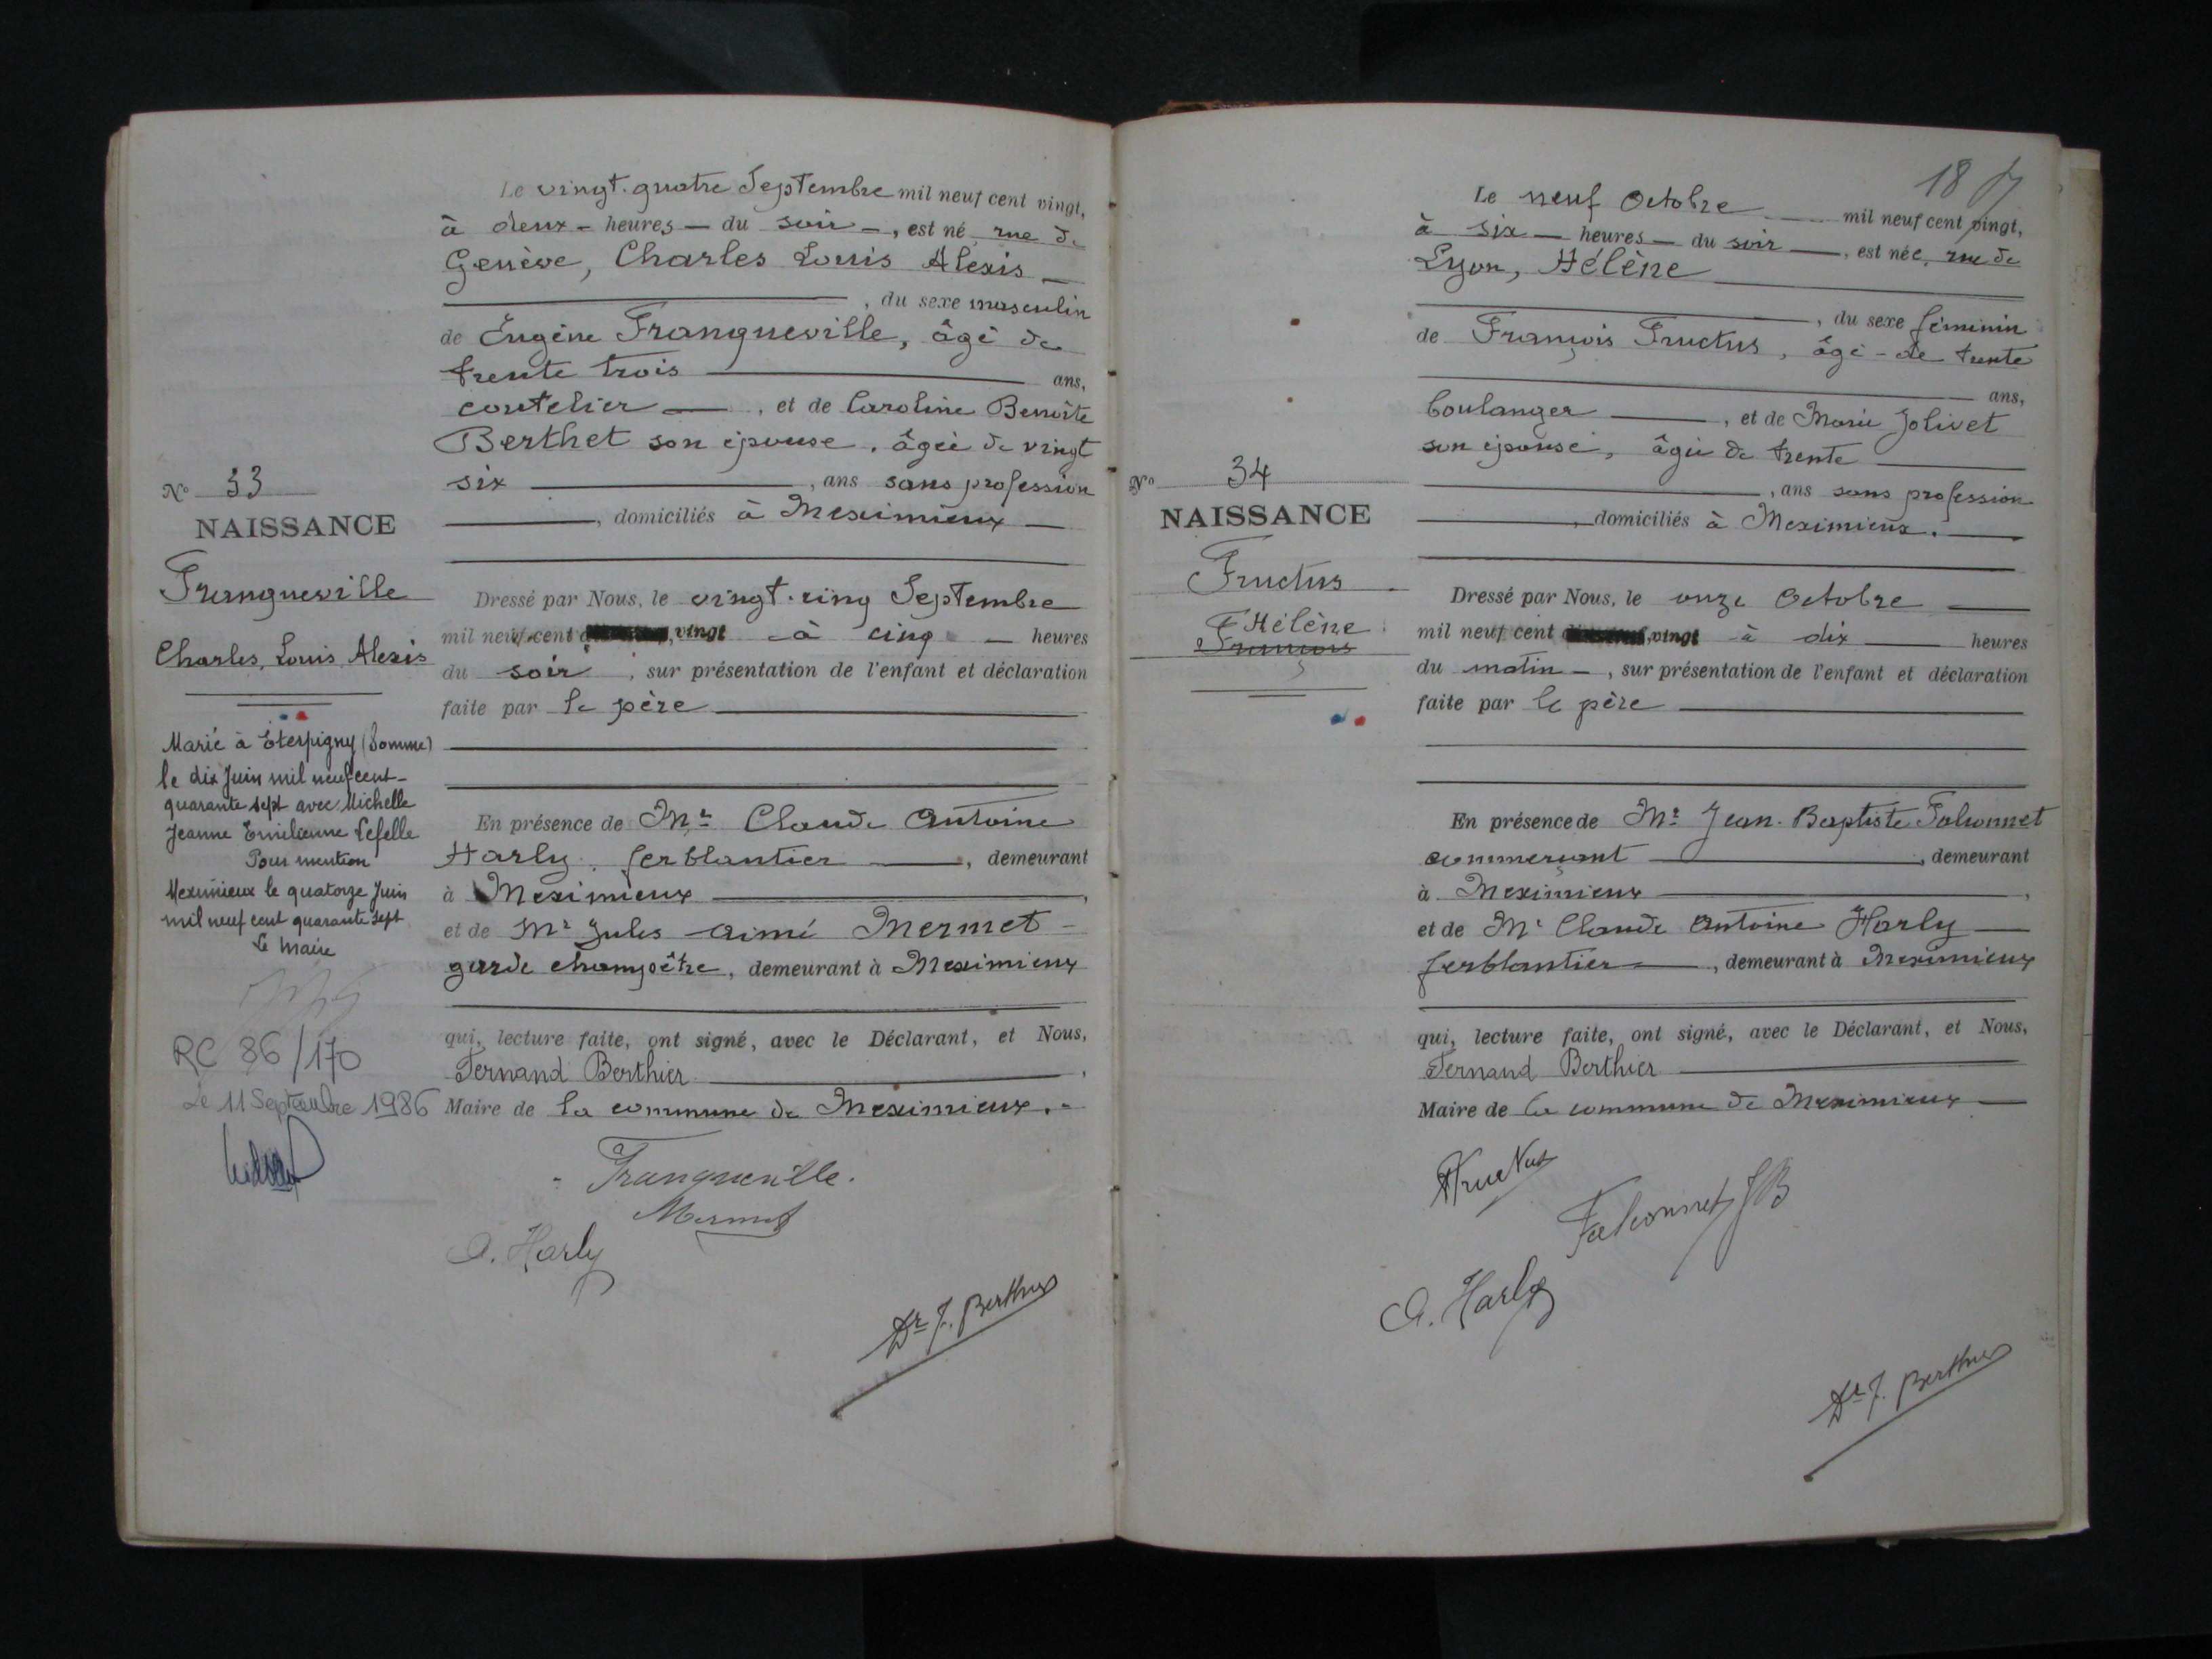 Le vingt-quatre Septembre mil neuf cent vingt,
à deux - heures - du soir -, est né rue de
Genève, Charles Louis Alexis
, du sexe masculin
de Eugène Franqueville, âgé de
trente trois ans,
coutelier , et de Caroline Benoîte
Berthet son épouse, âgée de vingt
six , ans sans profession
, domiciliés à Meximieux
Nº 33
NAISSANCE
Franqueville
Charles, Louis, Alexis
Dressé par Nous, le vingt-cinq Septembre
mil neuf cent vingt à cinq heures
du soir , sur présentation de l'enfant et déclaration
faite par le père
Marié à Eterpigny (Somme)
le dix Juin mil neuf cent-
quarante sept avec Michelle
Jeanne Emilienne Lefelle
Pour mention
Meximieux le quatorze Juin
mil neuf cent quarante sept
Le Maire
RC 86/170
Le 11 Septembre 1986
En présence de Mr Claude Antoine
Harly, ferblantier , demeurant
à Meximieux
et de Mr Jules Aimé Mermet
garde champêtre, demeurant à Meximieux
qui, lecture faite, ont signé, avec le Déclarant, et Nous,
Fernand Berthier
Maire de la commune de Meximieux.
Franqueville.
Mermet
A. Harly
Dr F. Berthier
18
Le neuf Octobre mil neuf cent vingt,
à six - heures - du soir , est née, rue de
Lyon, Hélène
, du sexe féminin
de François Fructus, âgé de trente
ans,
boulanger , et de Marie Jolivet
son épouse, âgée de trente
, ans sans profession
, domiciliés à Meximieux.
Nº 34
NAISSANCE
Fructus
Hélène
François
Dressé par Nous, le onze Octobre
mil neuf cent vingt à dix heures
du matin , sur présentation de l'enfant et déclaration
faite par le père
En présence de Mr Jean-Baptiste Falconnet
commerçant , demeurant
à Meximieux
et de Mr Claude Antoine Harly
ferblantier , demeurant à Meximieux
qui, lecture faite, ont signé, avec le Déclarant, et Nous,
Fernand Berthier
Maire de la commune de Meximieux
Fructus
Falconnet JB
A. Harly
Dr F. Berthier